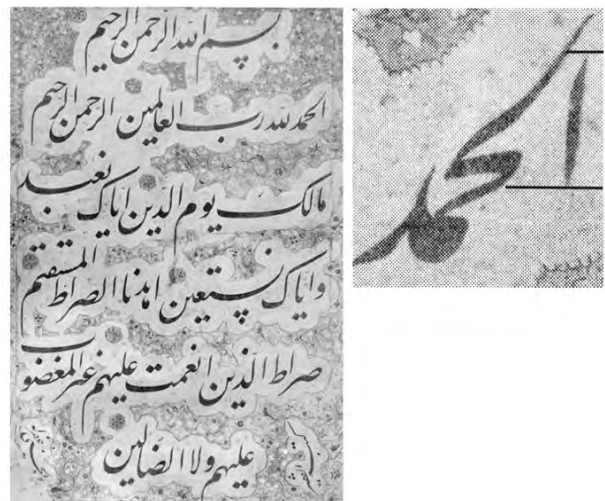 بسم الله الرحمن الرحیم
الحمد لله رب العالمین الرحمن الرحیم
مالک یوم الدین ایاک نعبد
وایاک نستعین اهدنا الصراط المستقیم
صراط الذین انعمت علیهم غیر المغضوب
علیهم ولا الضالین
الحمد